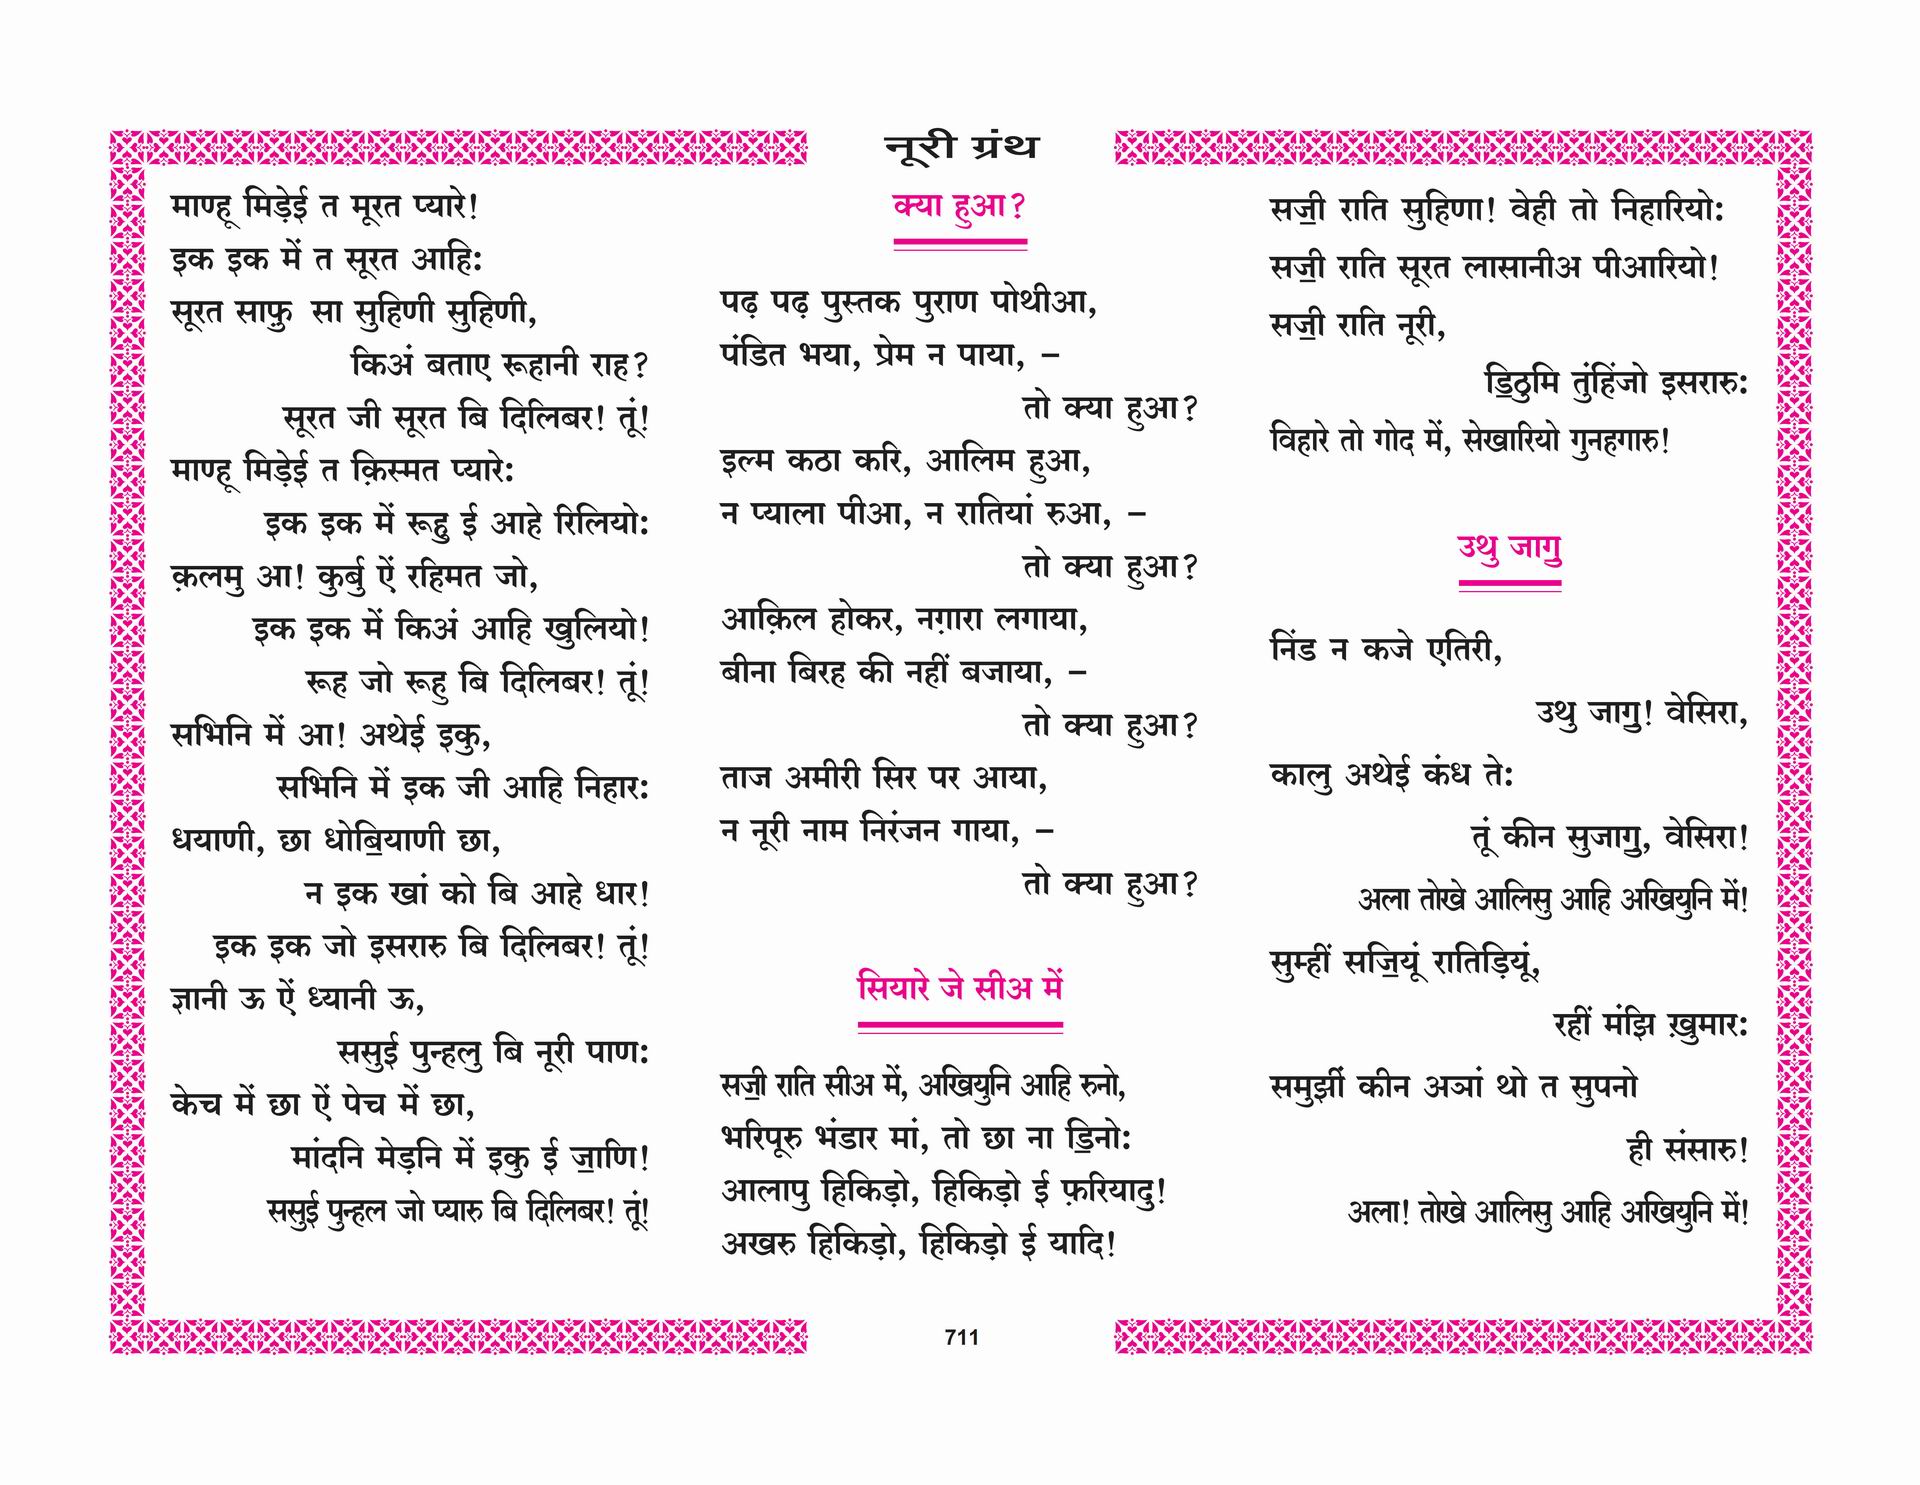 नूरी ग्रंथ
माण्हू मिड़ेई त मूरत प्यारे!
इक इक में त सूरत आहि:
सूरत साफ़ु सा सुहिणी सुहिणी,
किअं बताए रूहानी राह?
सूरत जी सूरत बि दिलिबर! तूं!
माण्हू मिड़ेई त क़िस्मत प्यारे:
इक इक में रूहु ई आहे रिलियो:
क़लमु आ! कुर्बु ऐं रहिमत जो,
इक इक में किअं आहि खुलियो!
रूह जो रूहु बि दिलिबर! तूं!
सभिनि में आ! अथेई इकु,
सभिनि में इक जी आहि निहार:
धयाणी, छा धोॿियाणी छा,
न इक खां को बि आहे धार!
इक इक जो इसरारु बि दिलिबर! तूं!
ज्ञानी ऊ ऐं ध्यानी ऊ,
ससुई पुन्हलु बि नूरी पाण:
केच में छा ऐं पेच में छा,
मांदनि मेड़नि में इकु ई ॼाणि!
ससुई पुन्हल जो प्यारु बि दिलिबर! तूं!
क्या हुआ?
पढ़ पढ़ पुस्तक पुराण पोथीआ,
पंडित भया, प्रेम न पाया, –
तो क्या हुआ?
इल्म कठा करि, आलिम हुआ,
न प्याला पीआ, न रातियां रुआ, –
तो क्या हुआ?
आक़िल होकर, नग़ारा लगाया,
बीना बिरह की नहीं बजाया, –
तो क्या हुआ?
ताज अमीरी सिर पर आया,
न नूरी नाम निरंजन गाया, –
तो क्या हुआ?
सियारे जे सीअ में
सॼी राति सीअ में, अखियुनि आहि रुनो,
भरिपूरु भंडार मां, तो छा ना ॾिनो:
आलापु हिकिड़ो, हिकिड़ो ई फ़रियादु!
अखरु हिकिड़ो, हिकिड़ो ई यादि!
सॼी राति सुहिणा! वेही तो निहारियो:
सॼी राति सूरत लासानीअ पीआरियो!
सॼी राति नूरी,
ॾिठुमि तुंहिंजो इसरारु:
विहारे तो गोद में, सेखारियो गुनहगारु!
उथु जागु॒
निंड न कजे एतिरी,
उथु जागु॒! वेसिरा,
कालु अथेई कंध ते:
तूं कीन सुजागु॒, वेसिरा!
अला तोखे आलिसु आहि अखियुनि में!
सुम्हीं सॼियूं रातिड़ियूं,
रहीं मंझि ख़ुमार:
समुझीं कीन अञां थो त सुपनो
ही संसारु!
अला! तोखे आलिसु आहि अखियुनि में!
711